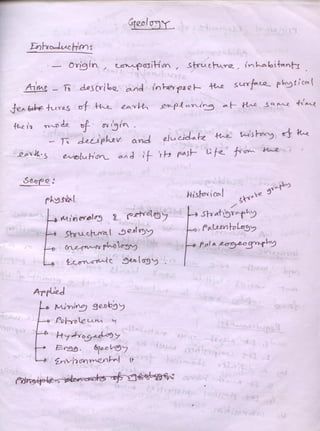 Geology
Introduction:
— Origin, composition, structure, inhabitants
Aims - To describe and interpret the surface physical
features of the earth explaining at the same time
their mode of origin.
- To decipher and elucidate the history of the
earth's evolution and if its past life from the
Scope:
Physical
Mineralogy & petrology
Structural geology
Geomorphology
Economic geology.
Historical
Stratigraphy
Palaeontology
Palaeogeography
Applied
Mining geology
Petroleum "
Hydrogeology
Engg. Geology
Environmental "